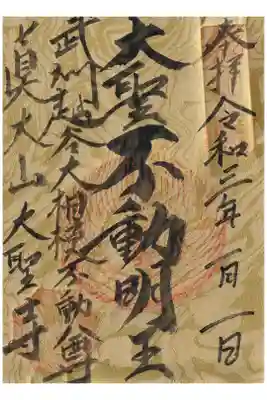 奉拝令和三年一月一日
大聖不動明王
武州越谷大相模不動尊
真大山大聖寺